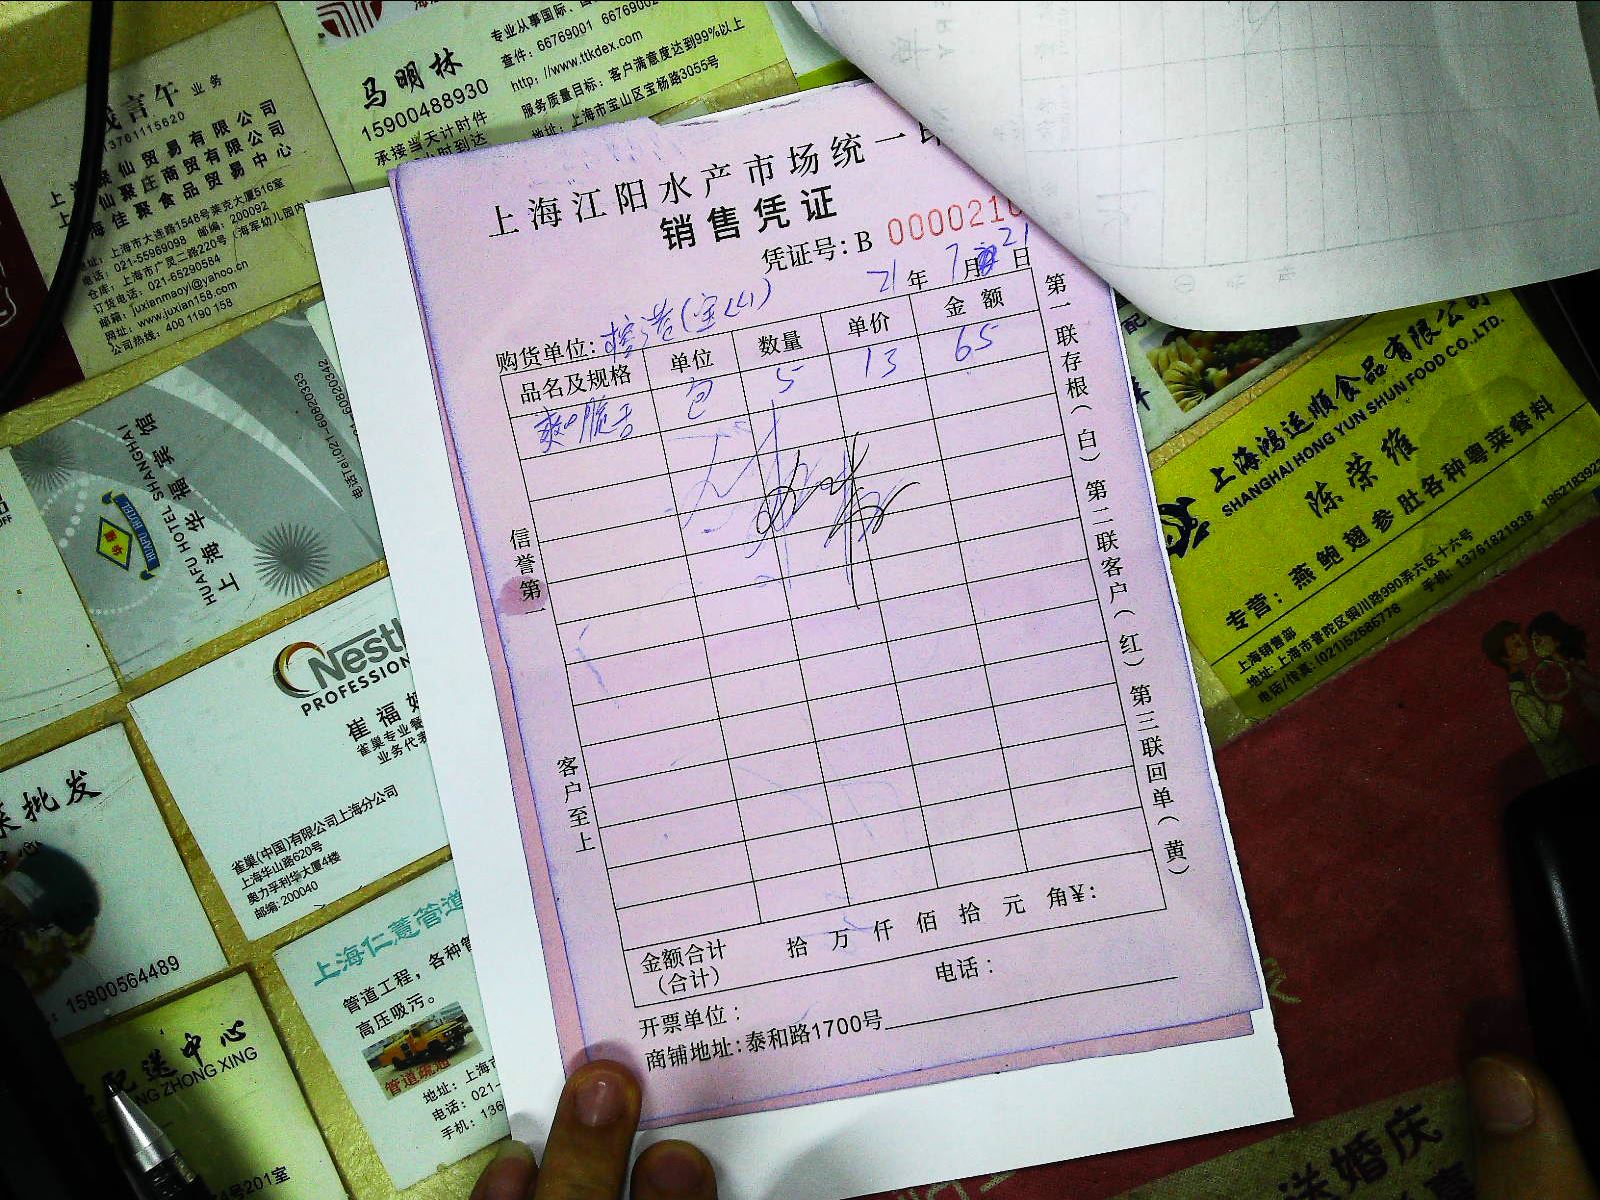 业务
13761115620
聚仙贸易有限公司
仙聚庄商贸有限公司
上海佳聚食品贸易中心
上海市大连路1548号莱克大厦516室
电话: 021-55969098 邮编: 200092
仓库: 上海市广灵二路220号 (海军幼儿园内
订货电话: 021-65290584
邮箱: juxianmaoyi@yahoo.cn
网址: www.juxian158.com
公司热线: 400 1190 158
马明林
15900488930
承接当天计时件
小时到达
专业从事国际、
查件: 66769001 6676900
http: //www.ttkdex.com
服务质量目标: 客户满意度达到99%以上
地址: 上海市宝山区宝杨路3055号
上海江阳水产市场统一印
销售凭证
凭证号: B 0000210
21 年 7 月 21 日
购货单位: (宝山)
品名及规格 单位 数量 单价 金额
包 5 13 65
信誉第一
客户至上
第一联存根(白) 第二联客户(红) 第三联回单(黄)
金额合计
(合计)
拾 万 仟 佰 拾 元 角¥:
开票单位:
电话:
商铺地址: 泰和路1700号
上海华福宾馆
HUAFU HOTEL SHANGHAI
HUAFU HOTEL
电话Tel:021-60820333
Nestl
PROFESSION
崔福
雀巢专业餐
业务代表
雀巢(中国)有限公司上海分公司
上海华山路620号
奥力孚利华大厦4楼
邮编: 200040
批发
15800564489
上海仁薏管道
管道工程，各种管
高压吸污。
管道疏通
地址: 上海市
电话: 021-
手机: 136
配送中心
ZHONG XING
号201室
上海鸿运顺食品有限公司
SHANGHAI HONG YUN SHUN FOOD CO.,LTD.
陈荣维
专营: 燕鲍翅参肚各种粤菜餐料
上海销售部
地址: 上海市普陀区铜川路990弄六区十六号
电话/传真: (021)52685778 手机: 13761821938
送婚庆